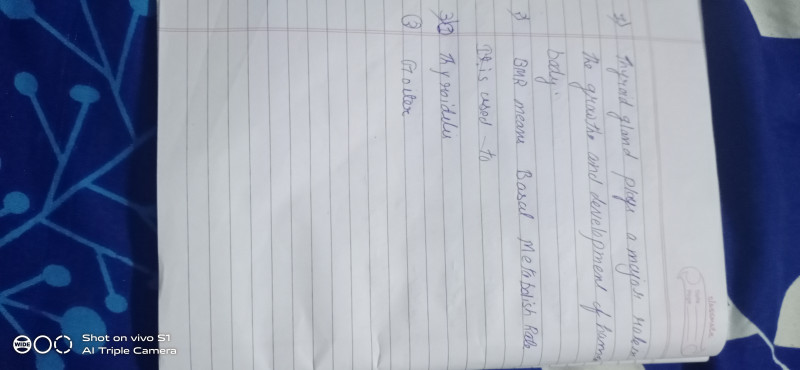 classmate
Date
Page
2) Thyroid gland plays a major role in
the growth and development of human
body.
3) BMR means Basal Metabolish Rate
It is used to
3) 1) Thyroiditis
2) Goiter
WIDE
Shot on vivo S1
AI Triple Camera